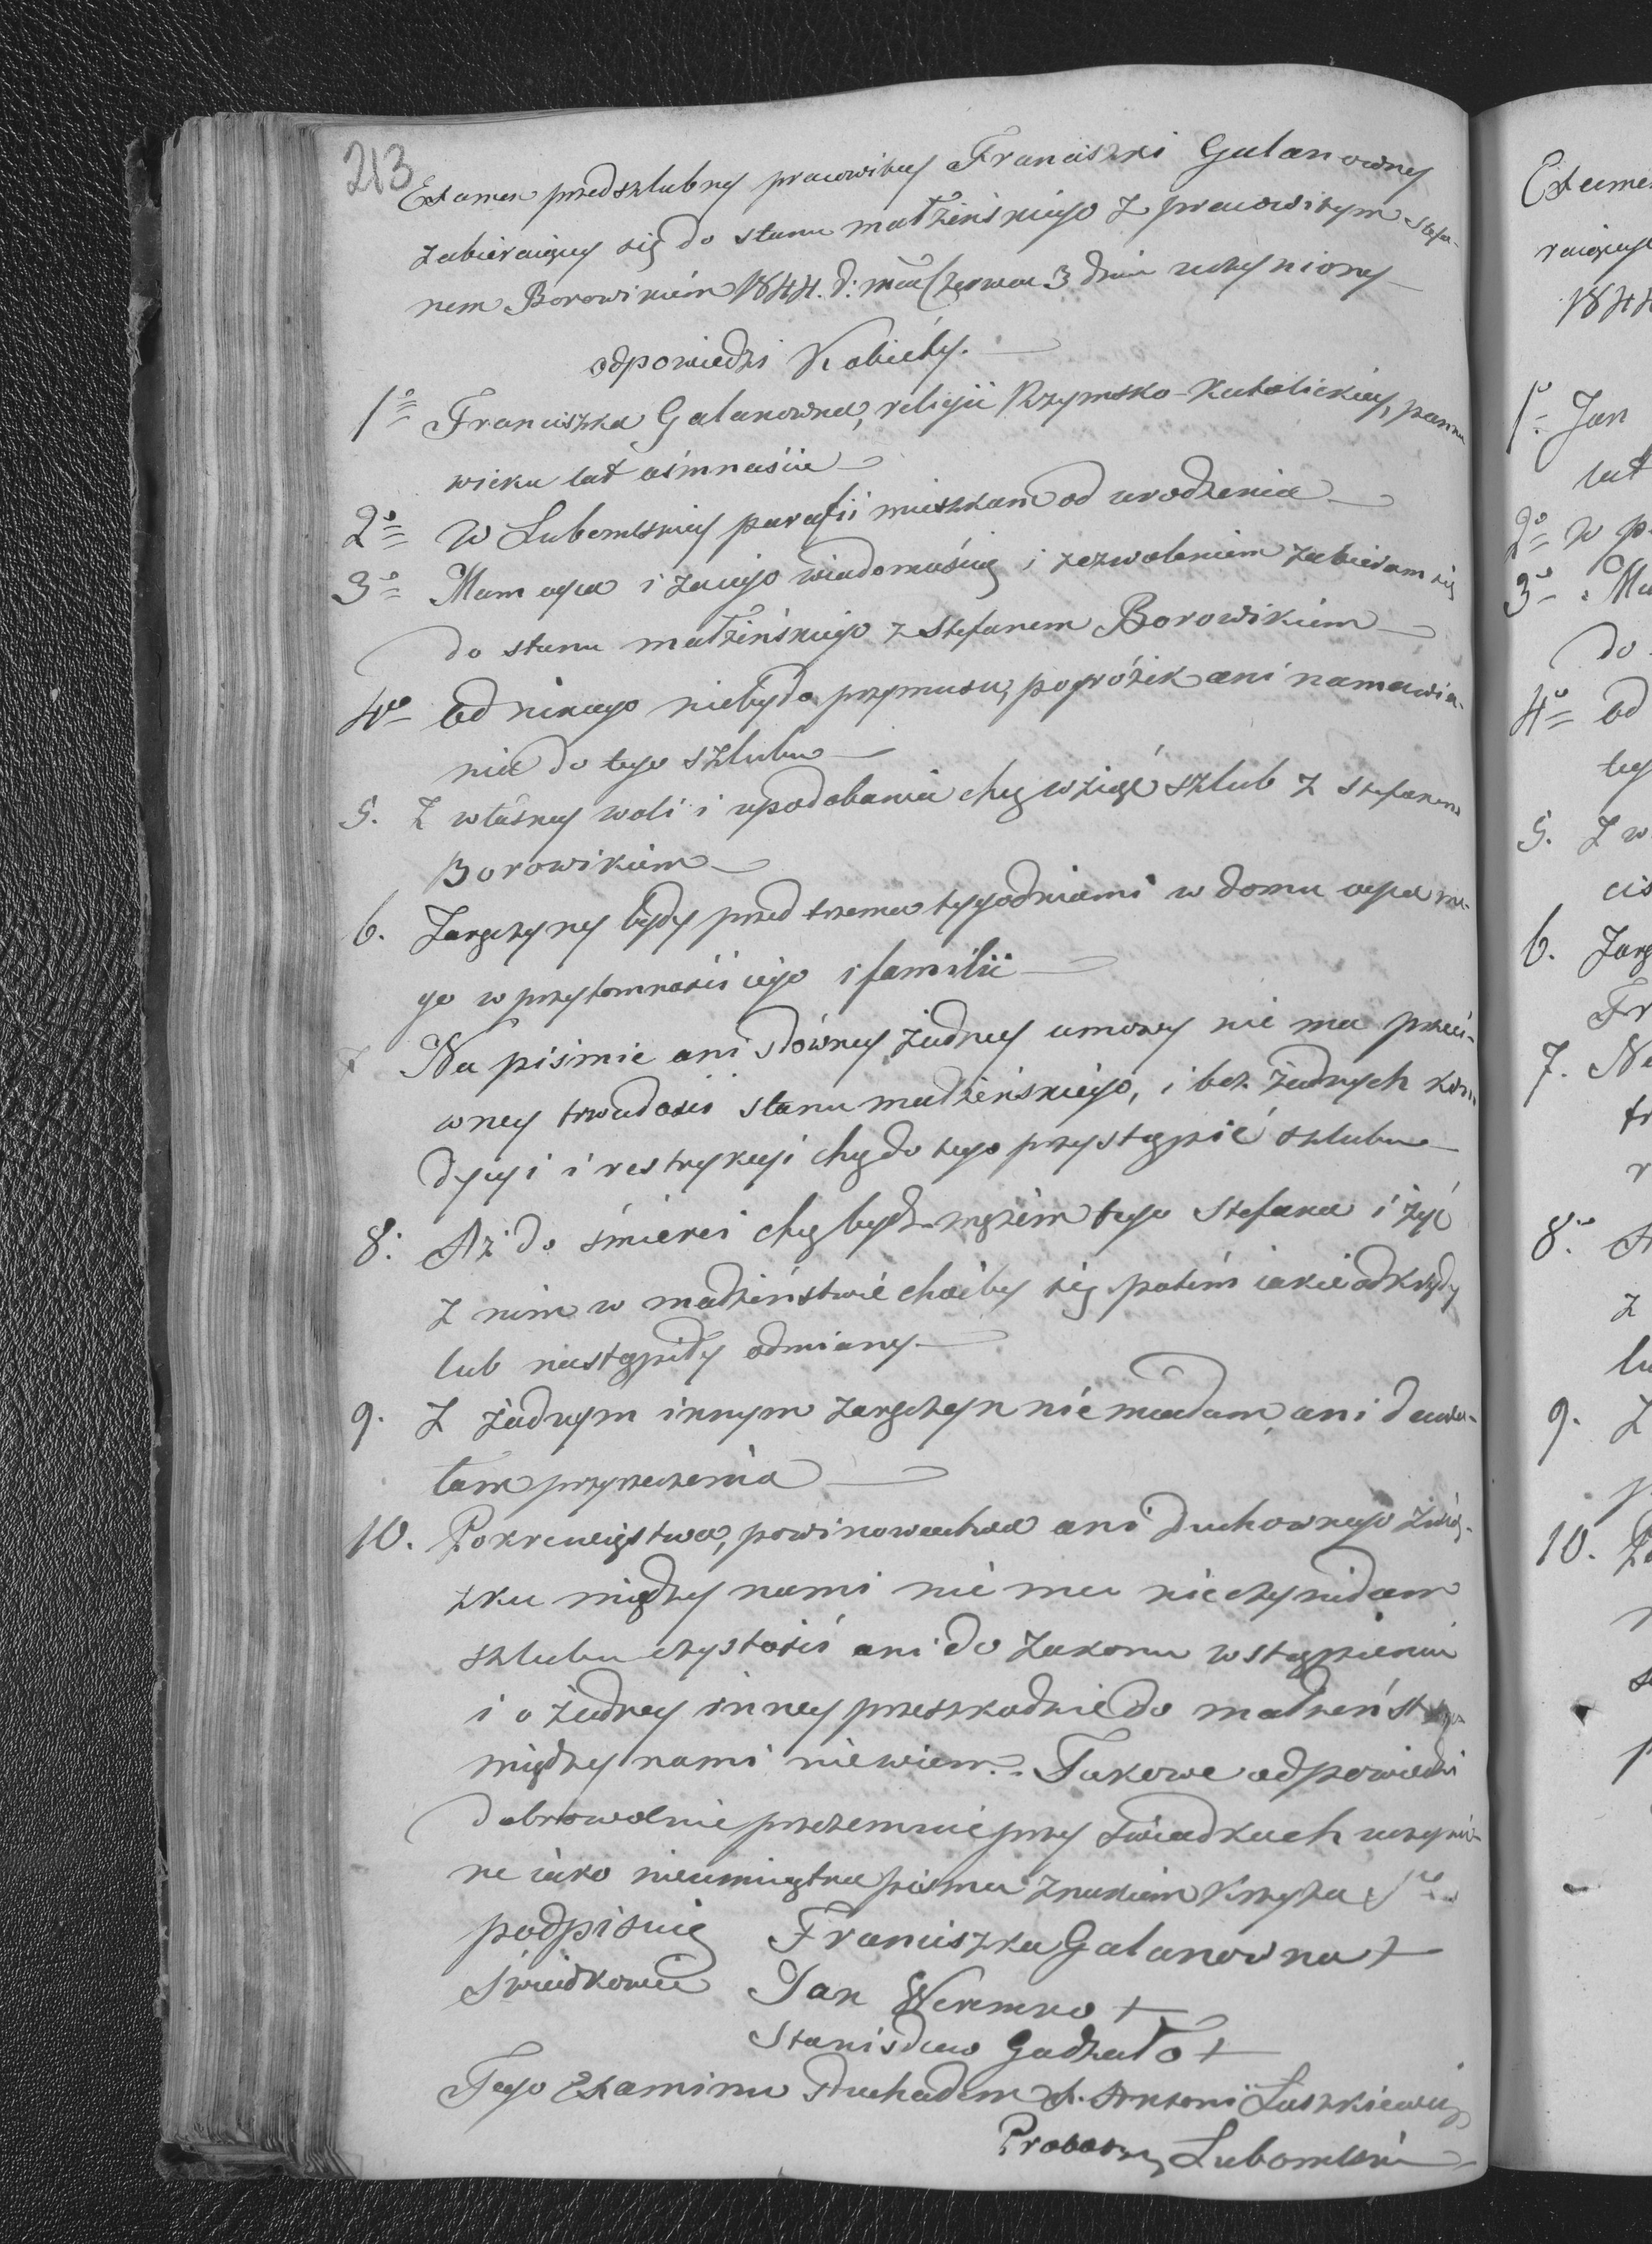 213
Examen przedszlubny pracowitey Franciszki Galanowney
zabieraiącey się do stanu małżeńskiego z pracowitym Stefa-
nem Borowikiem 1844. d: mca Czerwca 3 dnia uczyniony
odpowiedzi Kobiéty.
1º Franciszka Galanowna, religii Rzymsko-Katolickiey, panna
wieku lat ośmnaście
2º w Lubomlskiey parafii mieszkam od urodzenia
3º Mam oyca i za iego wiadomością i zezwoleniem zabieram się
do stanu małżeńskiego z Stefanem Borowikiem
4º od nikogo niebyło przymusu, pogróżek ani namawia-
nia do tego szlubu
5. Z własney woli i upodobania chcę wziąść szlub z Stefanem
Borowikiem
6. Zaręczyny były przed trzema tygodniami w domu oyca me-
go w przytomności iego i familii
7 Na piśmie ani słówney żadney umowy nie ma przeci-
wney trwałości stanu małżeńskiego, i bez żadnych kon-
dycyi i restrykcyi chcę do tego przystąpić szlubu
8: Aż do śmierci chcę bydź mężem tego Stefana i żyć
z nim w małżeństwie choćby się potém iakie odkryły
lub nastąpiły odmiany.
9. Z żadnym innym zaręczyn nie miałam, ani dawa-
łam przyrzeczenia
10. Pokrewięstwa, powinowactwa ani duchownego zwią-
zku między nami nie ma nie czyniłam
szlubu czystości ani do zakonu wstąpienia
i o żadney inney przeszkodzie do małżeństwa
między nami niewiem. Takowe odpowiedzi
dobrowolnie przezemnie przy świadkach uczynio-
ne iako nieumiętna pisma znakiem Krzyża S.
podpisuię Franciszka Galanowna +
Świadkowie Jan Weremko +
Stanisław Gadzało +
Tego Examinu słuchałem X. Antoni Łuszkiewicz
Proboszcz Lubomlski